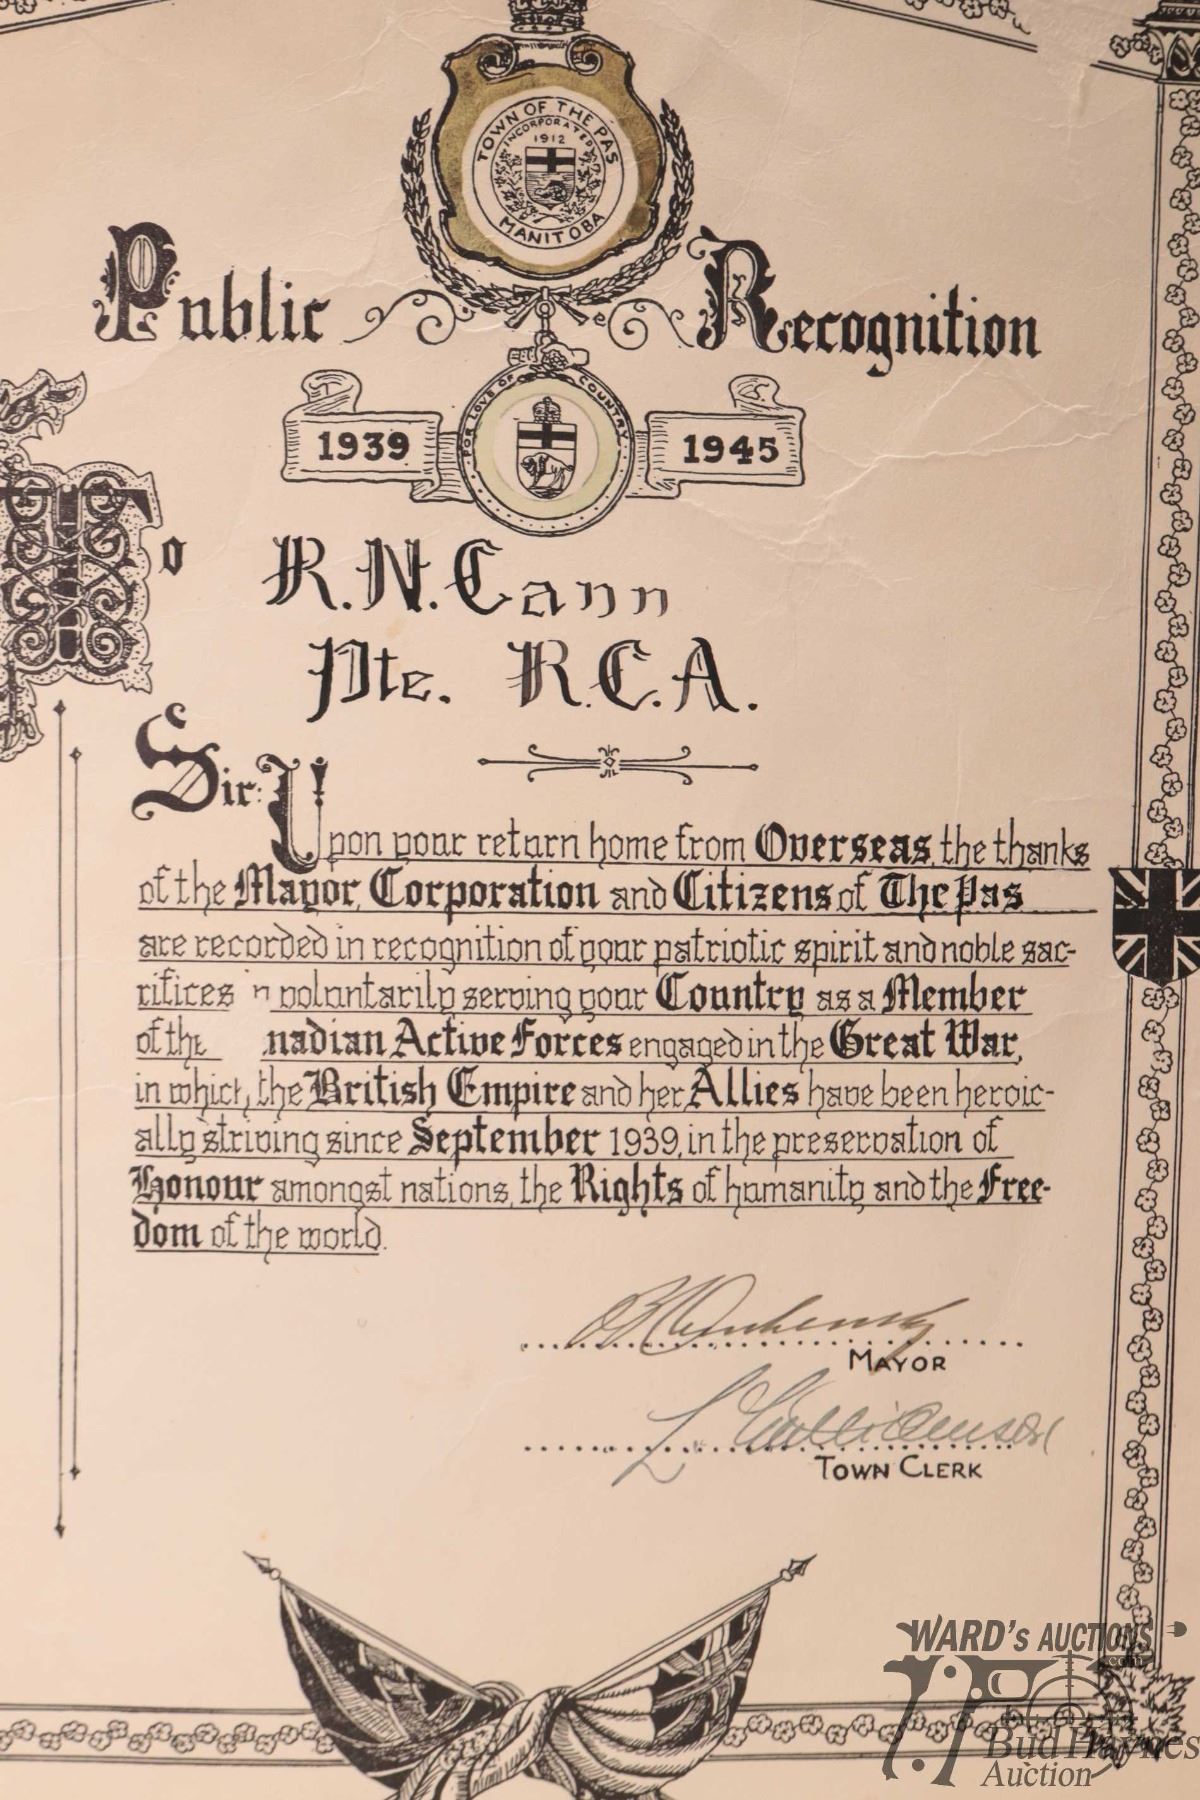 TOWN OF THE PAS
INCORPORATED
1912
MANITOBA
Public Recognition
FOR LOVE OF COUNTRY
1939 1945
To R.N. Cann
Pte. R.C.A.
Sir:
Upon your return home from Overseas, the thanks
of the Mayor, Corporation and Citizens of The Pas
are recorded in recognition of your patriotic spirit and noble sac-
rifices in voluntarily serving your Country as a Member
of the nadian Active Forces engaged in the Great War,
in which, the British Empire and her Allies have been heroic-
ally striving since September 1939, in the preservation of
Honour amongst nations, the Rights of humanity and the Free-
dom of the world.
MAYOR
TOWN CLERK
WARD's AUCTIONS
.com
Bud Haynes
Auction